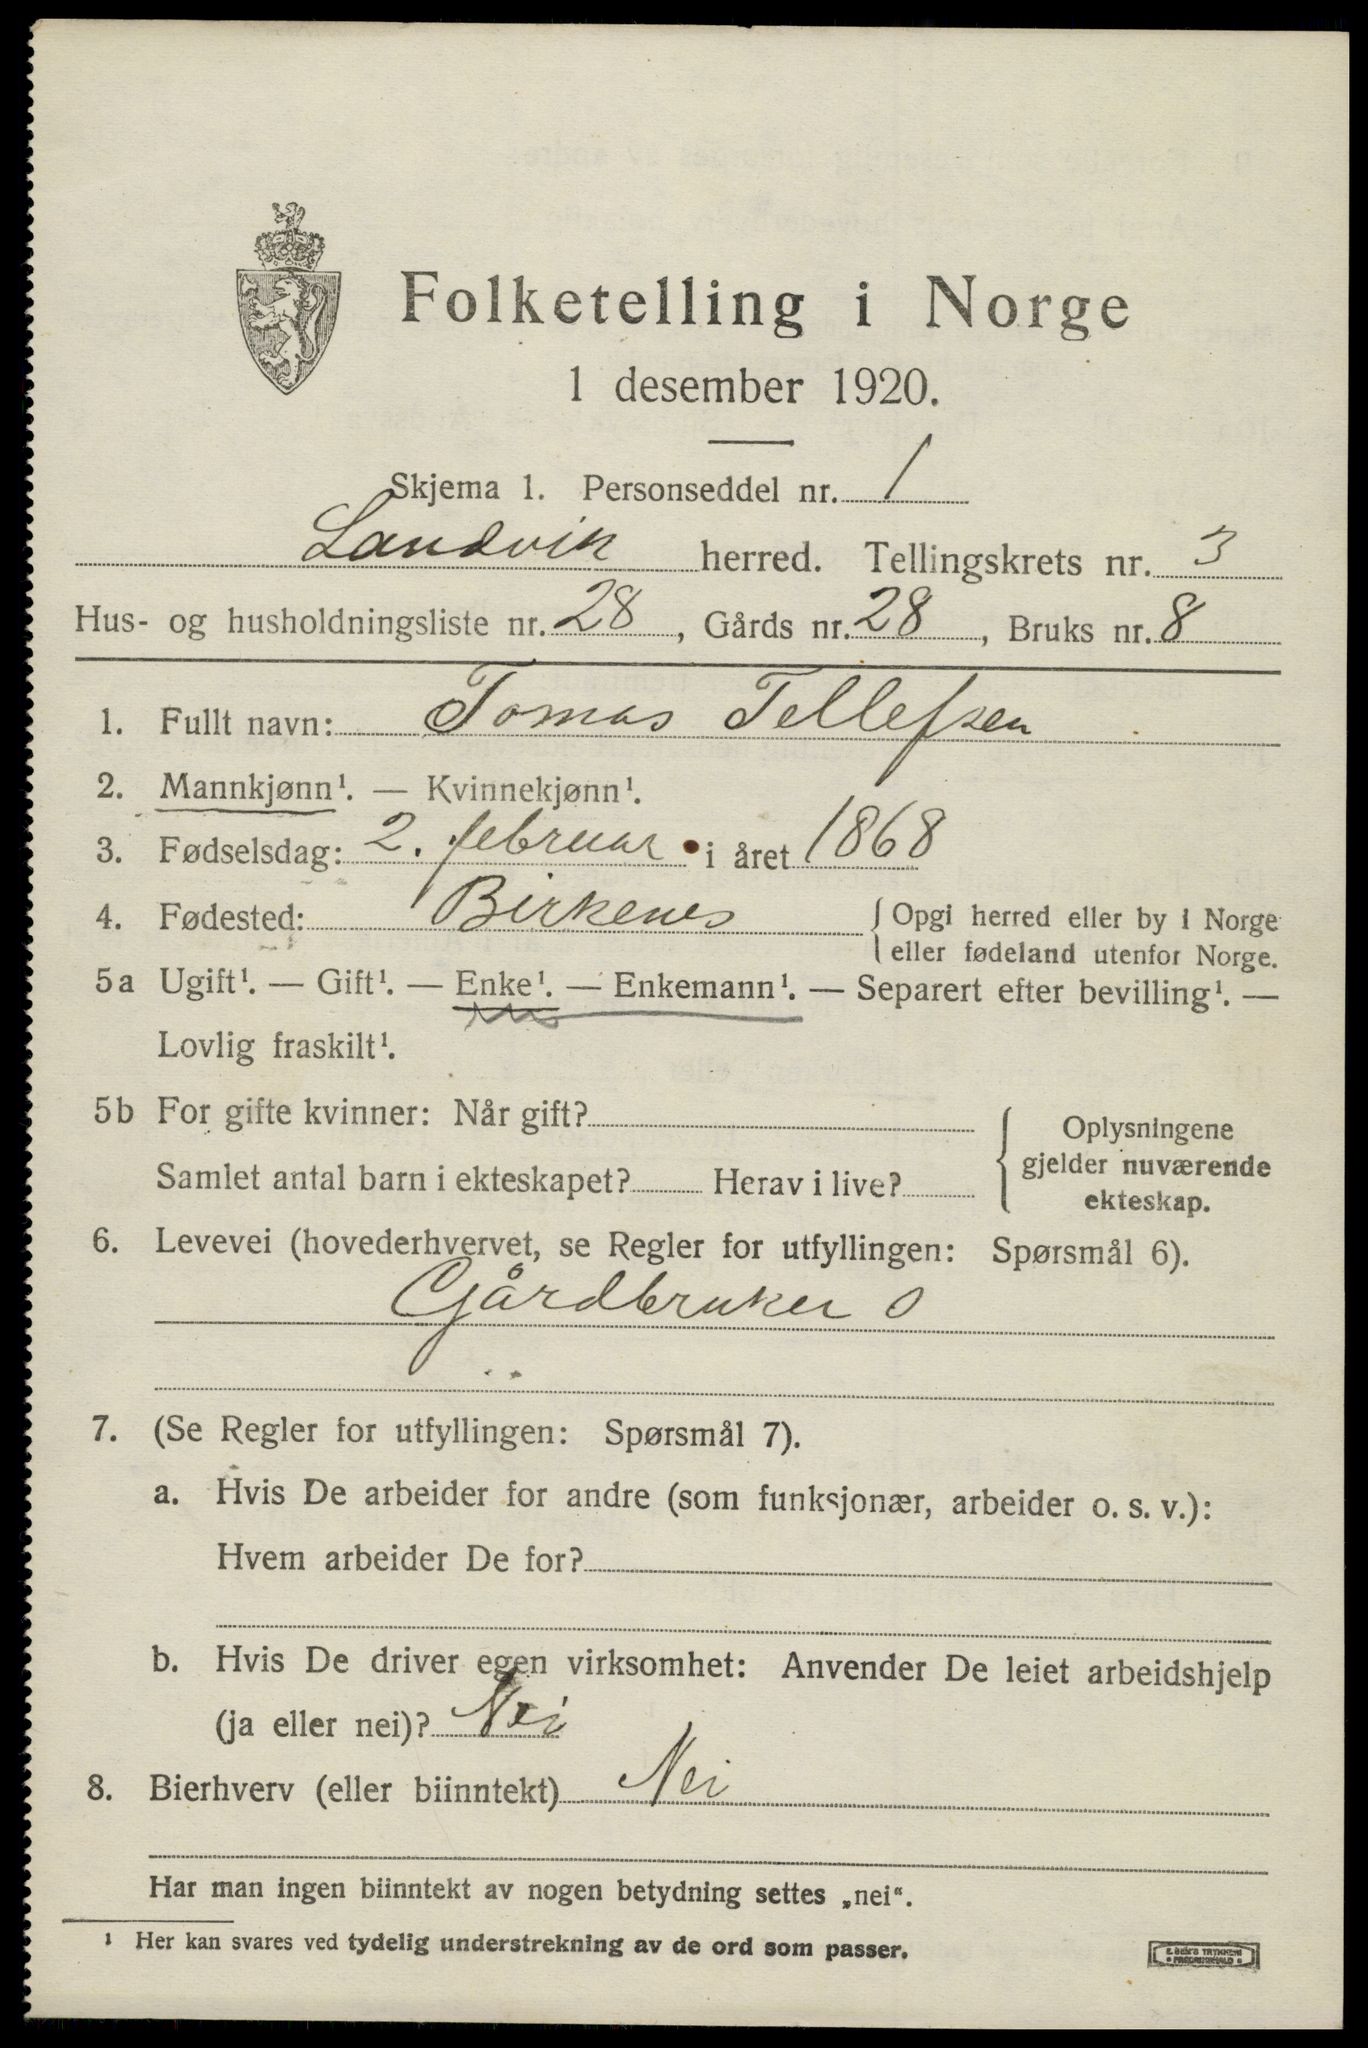 Folketelling i Norge
1 desember 1920.
Skjema 1. Personseddel nr. 1
Landvik herred. Tellingskrets nr. 3
Hus- og husholdningsliste nr. 28, Gårds nr. 28, Bruks nr. 8
1. Fullt navn: Tomas Tellefsen
2. Mannkjønn¹. — Kvinnekjønn¹.
3. Fødselsdag: 2. februar i året 1868
4. Fødested: Birkenes { Opgi herred eller by i Norge
eller fødeland utenfor Norge.
5a Ugift¹. — Gift¹. — Enke¹. — Enkemann¹. — Separert efter bevilling¹. —
Lovlig fraskilt¹.
5b For gifte kvinner: Når gift?
Samlet antal barn i ekteskapet? Herav i live?
Oplysningene
gjelder nuværende
ekteskap.
6. Levevei (hovederhvervet, se Regler for utfyllingen: Spørsmål 6).
Gårdbruker o
7. (Se Regler for utfyllingen: Spørsmål 7).
a. Hvis De arbeider for andre (som funksjonær, arbeider o. s. v.):
Hvem arbeider De for?
b. Hvis De driver egen virksomhet: Anvender De leiet arbeidshjelp
(ja eller nei)? Nei
8. Bierhverv (eller biinntekt) Nei
Har man ingen biinntekt av nogen betydning settes „nei“.
¹ Her kan svares ved tydelig understrekning av de ord som passer.